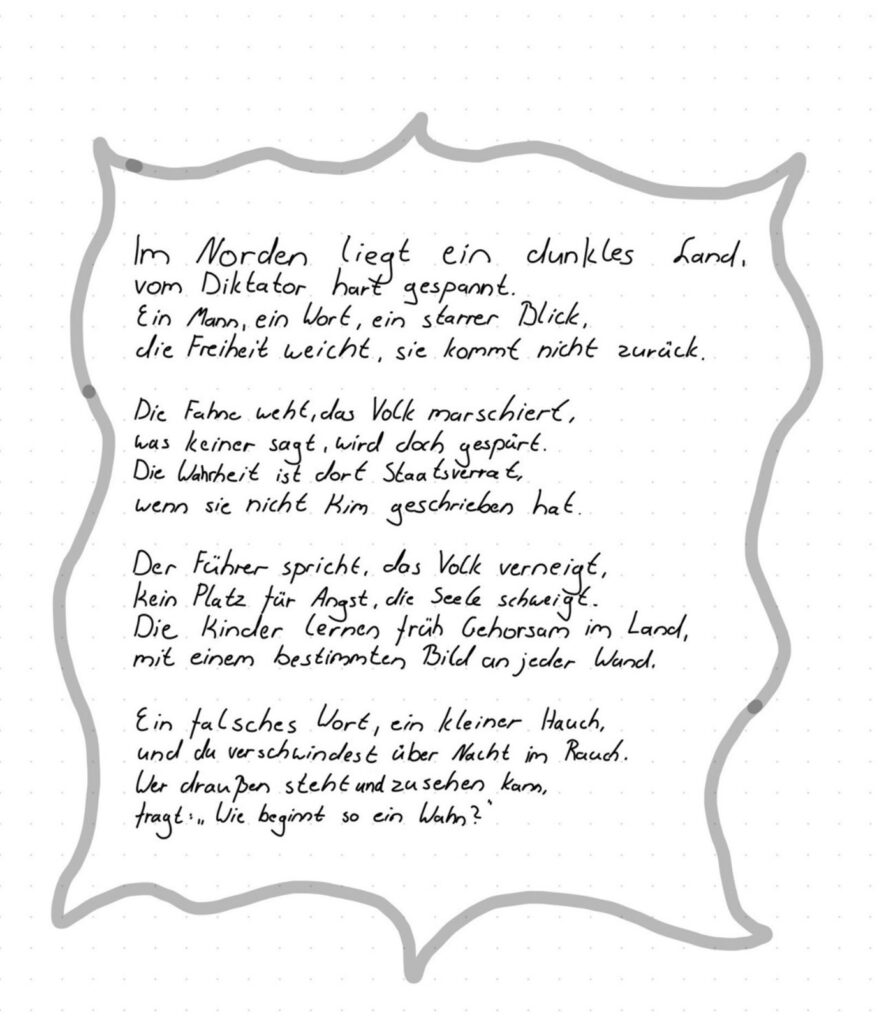 Im Norden liegt ein dunkles Land,
vom Diktator hart gespannt.
Ein Mann, ein Wort, ein starrer Blick,
die Freiheit weicht, sie kommt nicht zurück.
Die Fahne weht, das Volk marschiert,
was keiner sagt, wird doch gespürt.
Die Wahrheit ist dort Staatsverrat,
wenn sie nicht Kim geschrieben hat.
Der Führer spricht, das Volk verneigt,
kein Platz für Angst, die Seele schweigt.
Die Kinder lernen früh Gehorsam im Land,
mit einem bestimmten Bild an jeder Wand.
Ein falsches Wort, ein kleiner Hauch,
und du verschwindest über Nacht im Rauch.
Wer draußen steht und zusehen kann,
fragt: „Wie beginnt so ein Wahn?"